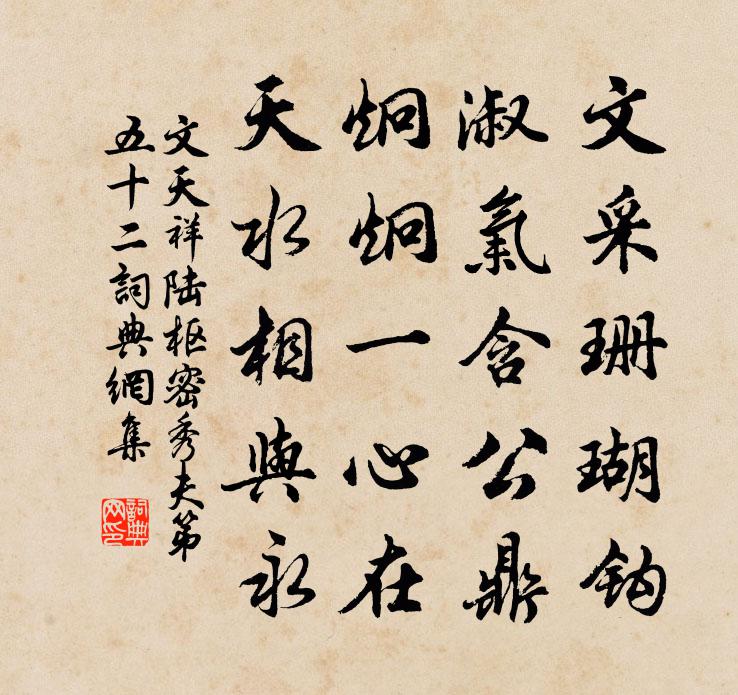 文采珊瑚钩
淑氣含公鼎
炯炯一心在
天水相與永
文天祥陆枢密秀夫第
五十二詞典網集
詞典网印